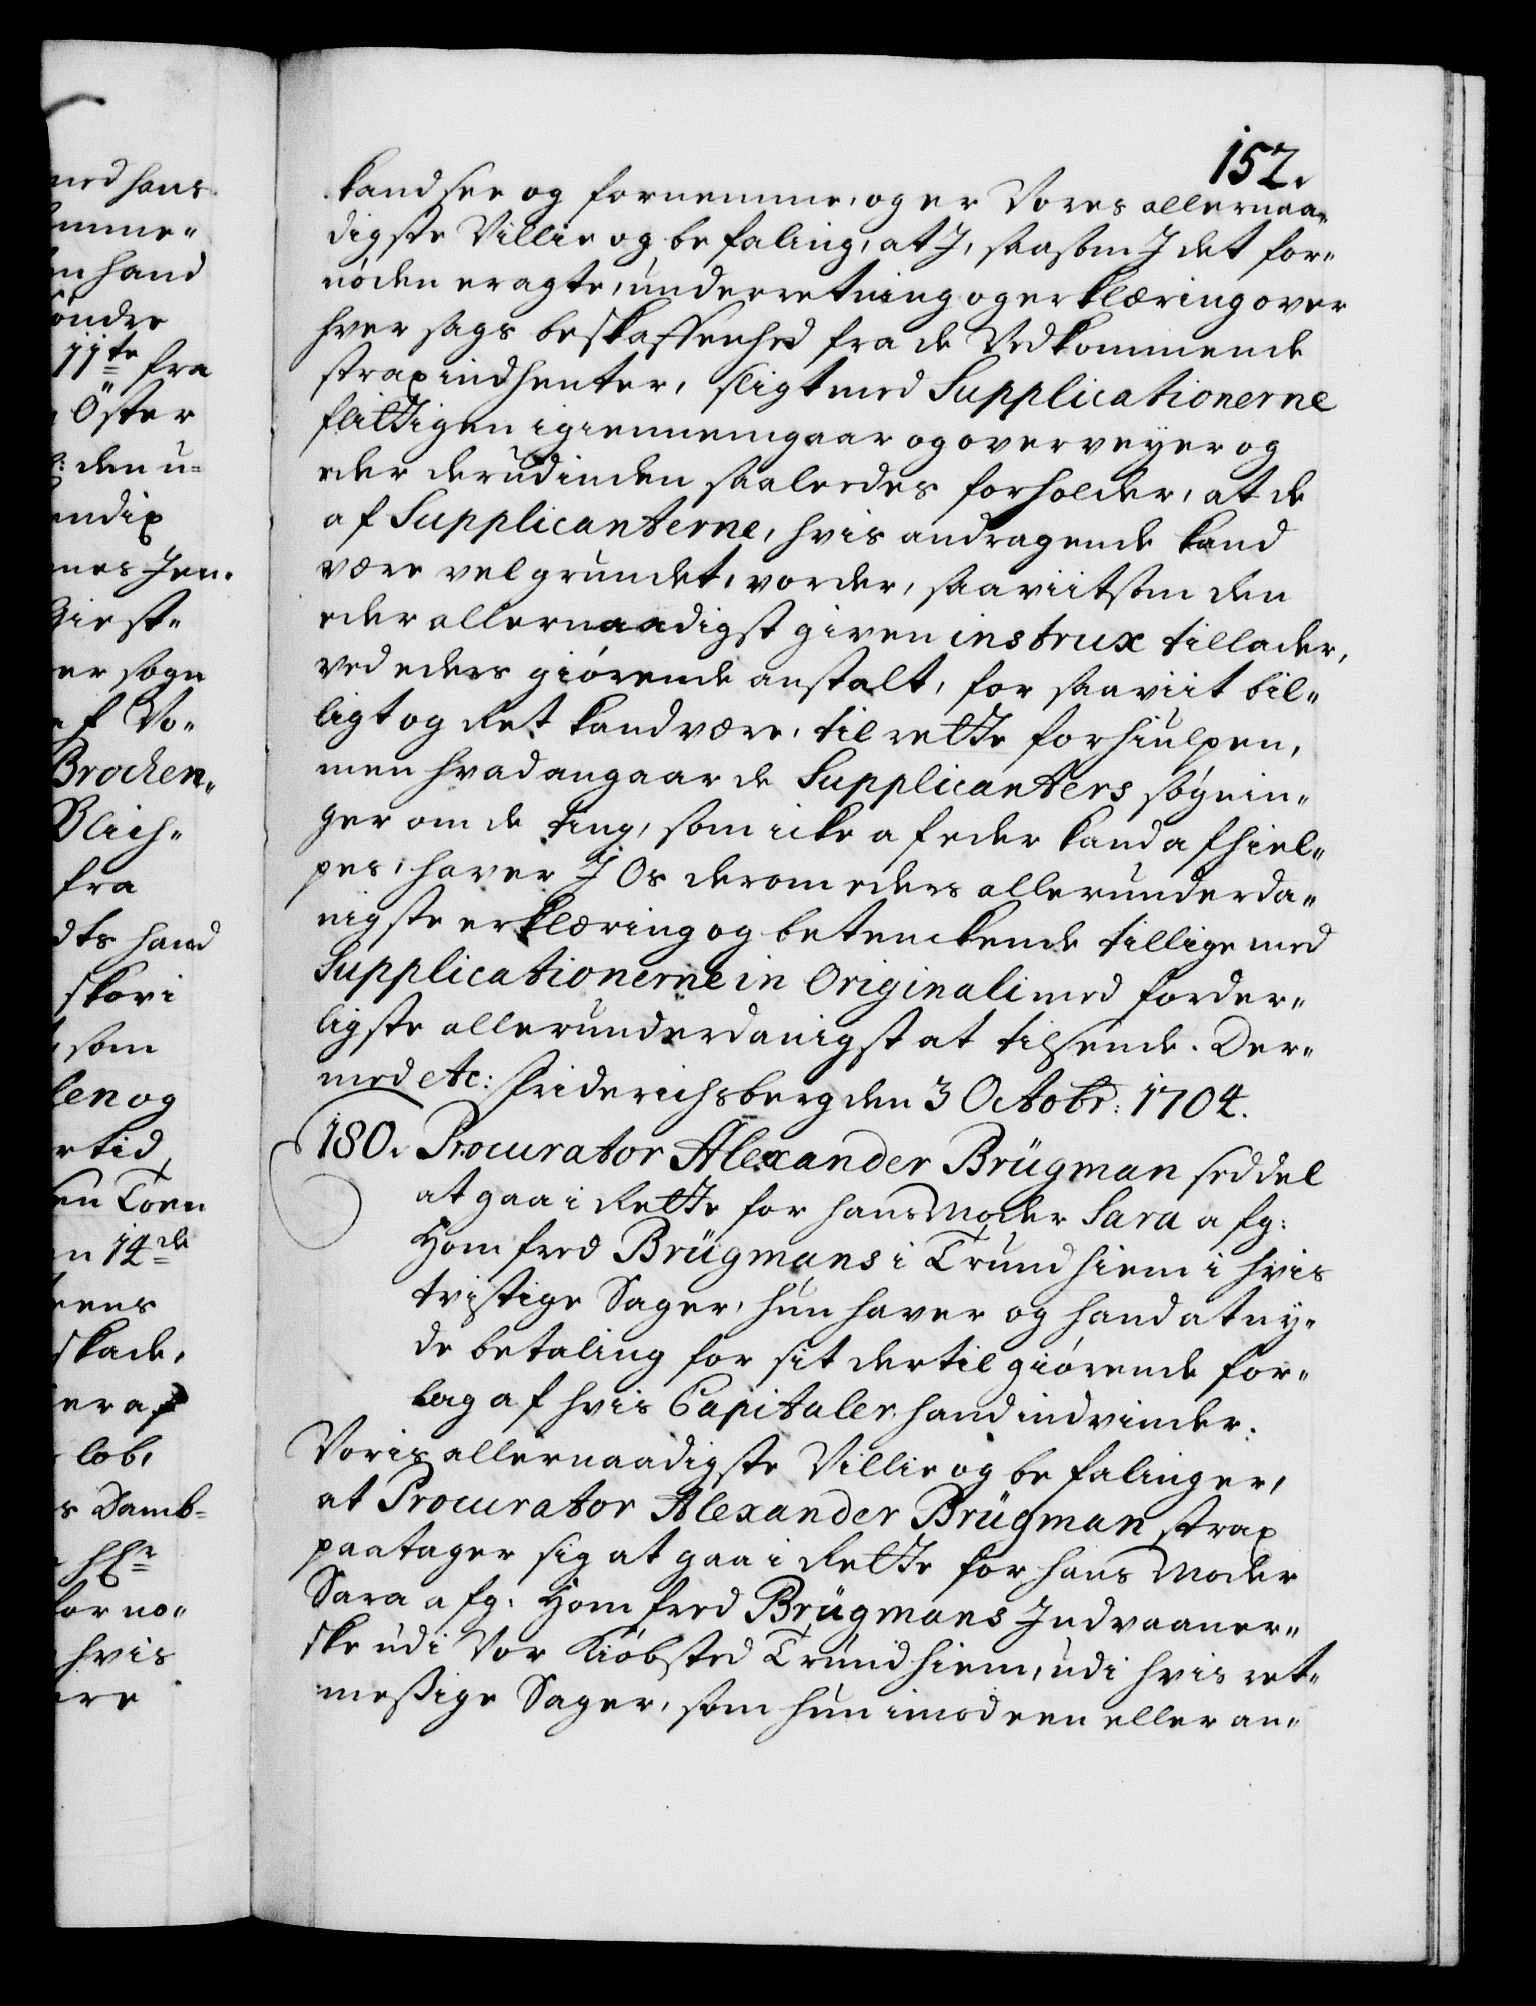 152.
kand see og fornemme, og er Vores allernaa„
digste Villie og befaling, at I, saasom I det for„
nöden eragte, underretning og erklæring over
hver sags beskaffenhed fra de Vedkommende
strax indhenter, sligt med Supplicationerne
flittigen igiennemgaar og overveyer og
eder derudinden saaledes forholder, at de
af Supplicanterne, hvis andragende kand
være velgrundet, vorder, saaviit som den
eder allernaadigst given instrux tillader,
ved eders giörende anstalt, for saaviit bil„
ligt og Ret kand være, til rette forhiulpen,
men hvad angaar de Supplicanters søgnin„
ger om de ting, som icke af eder kand afhiel„
pes, haver I Os derom eders allerunderda„
nigste erklæring og betenckende tillige med
Supplicationerne in Originali med forder„
ligste allerunderdanigst at tilsende. Der„
med etc: Friderichsberg den 3 Octobr: 1704.
180. Procurator Alexander Brügman seddel
at gaa i Rette for hans Moder Sara afg:
Homfred Brügmans i Trundhiem i hvis
tvistige Sager, hun haver og hand at ny„
de betaling for sit dertil giörende for„
lag af hvis Capitaler hand indvinder.
Voris allernaadigste Villie og befaling er,
at Procurator Alexander Brügman strax
paatager sig at gaa i Rette for hans Moder
Sara afg: Homfred Brügmans Indvaaner„
ske udi Vor Kiöbsted Trundhiem, udi hvis ret„
messige Sager, som hun imod een eller an„
med hans
mme„
en hand
öndre
11te fra
Öster
den u=
endix
nes Jen.
Giest„
er sogn
af Vo„
Brocken„
Blich„
fra
dts hand
skov i
, som
len og
r tid
en Toen
n 14de
eens
skade,
er af
lob,
s Damb=
for no„
hvis
ere